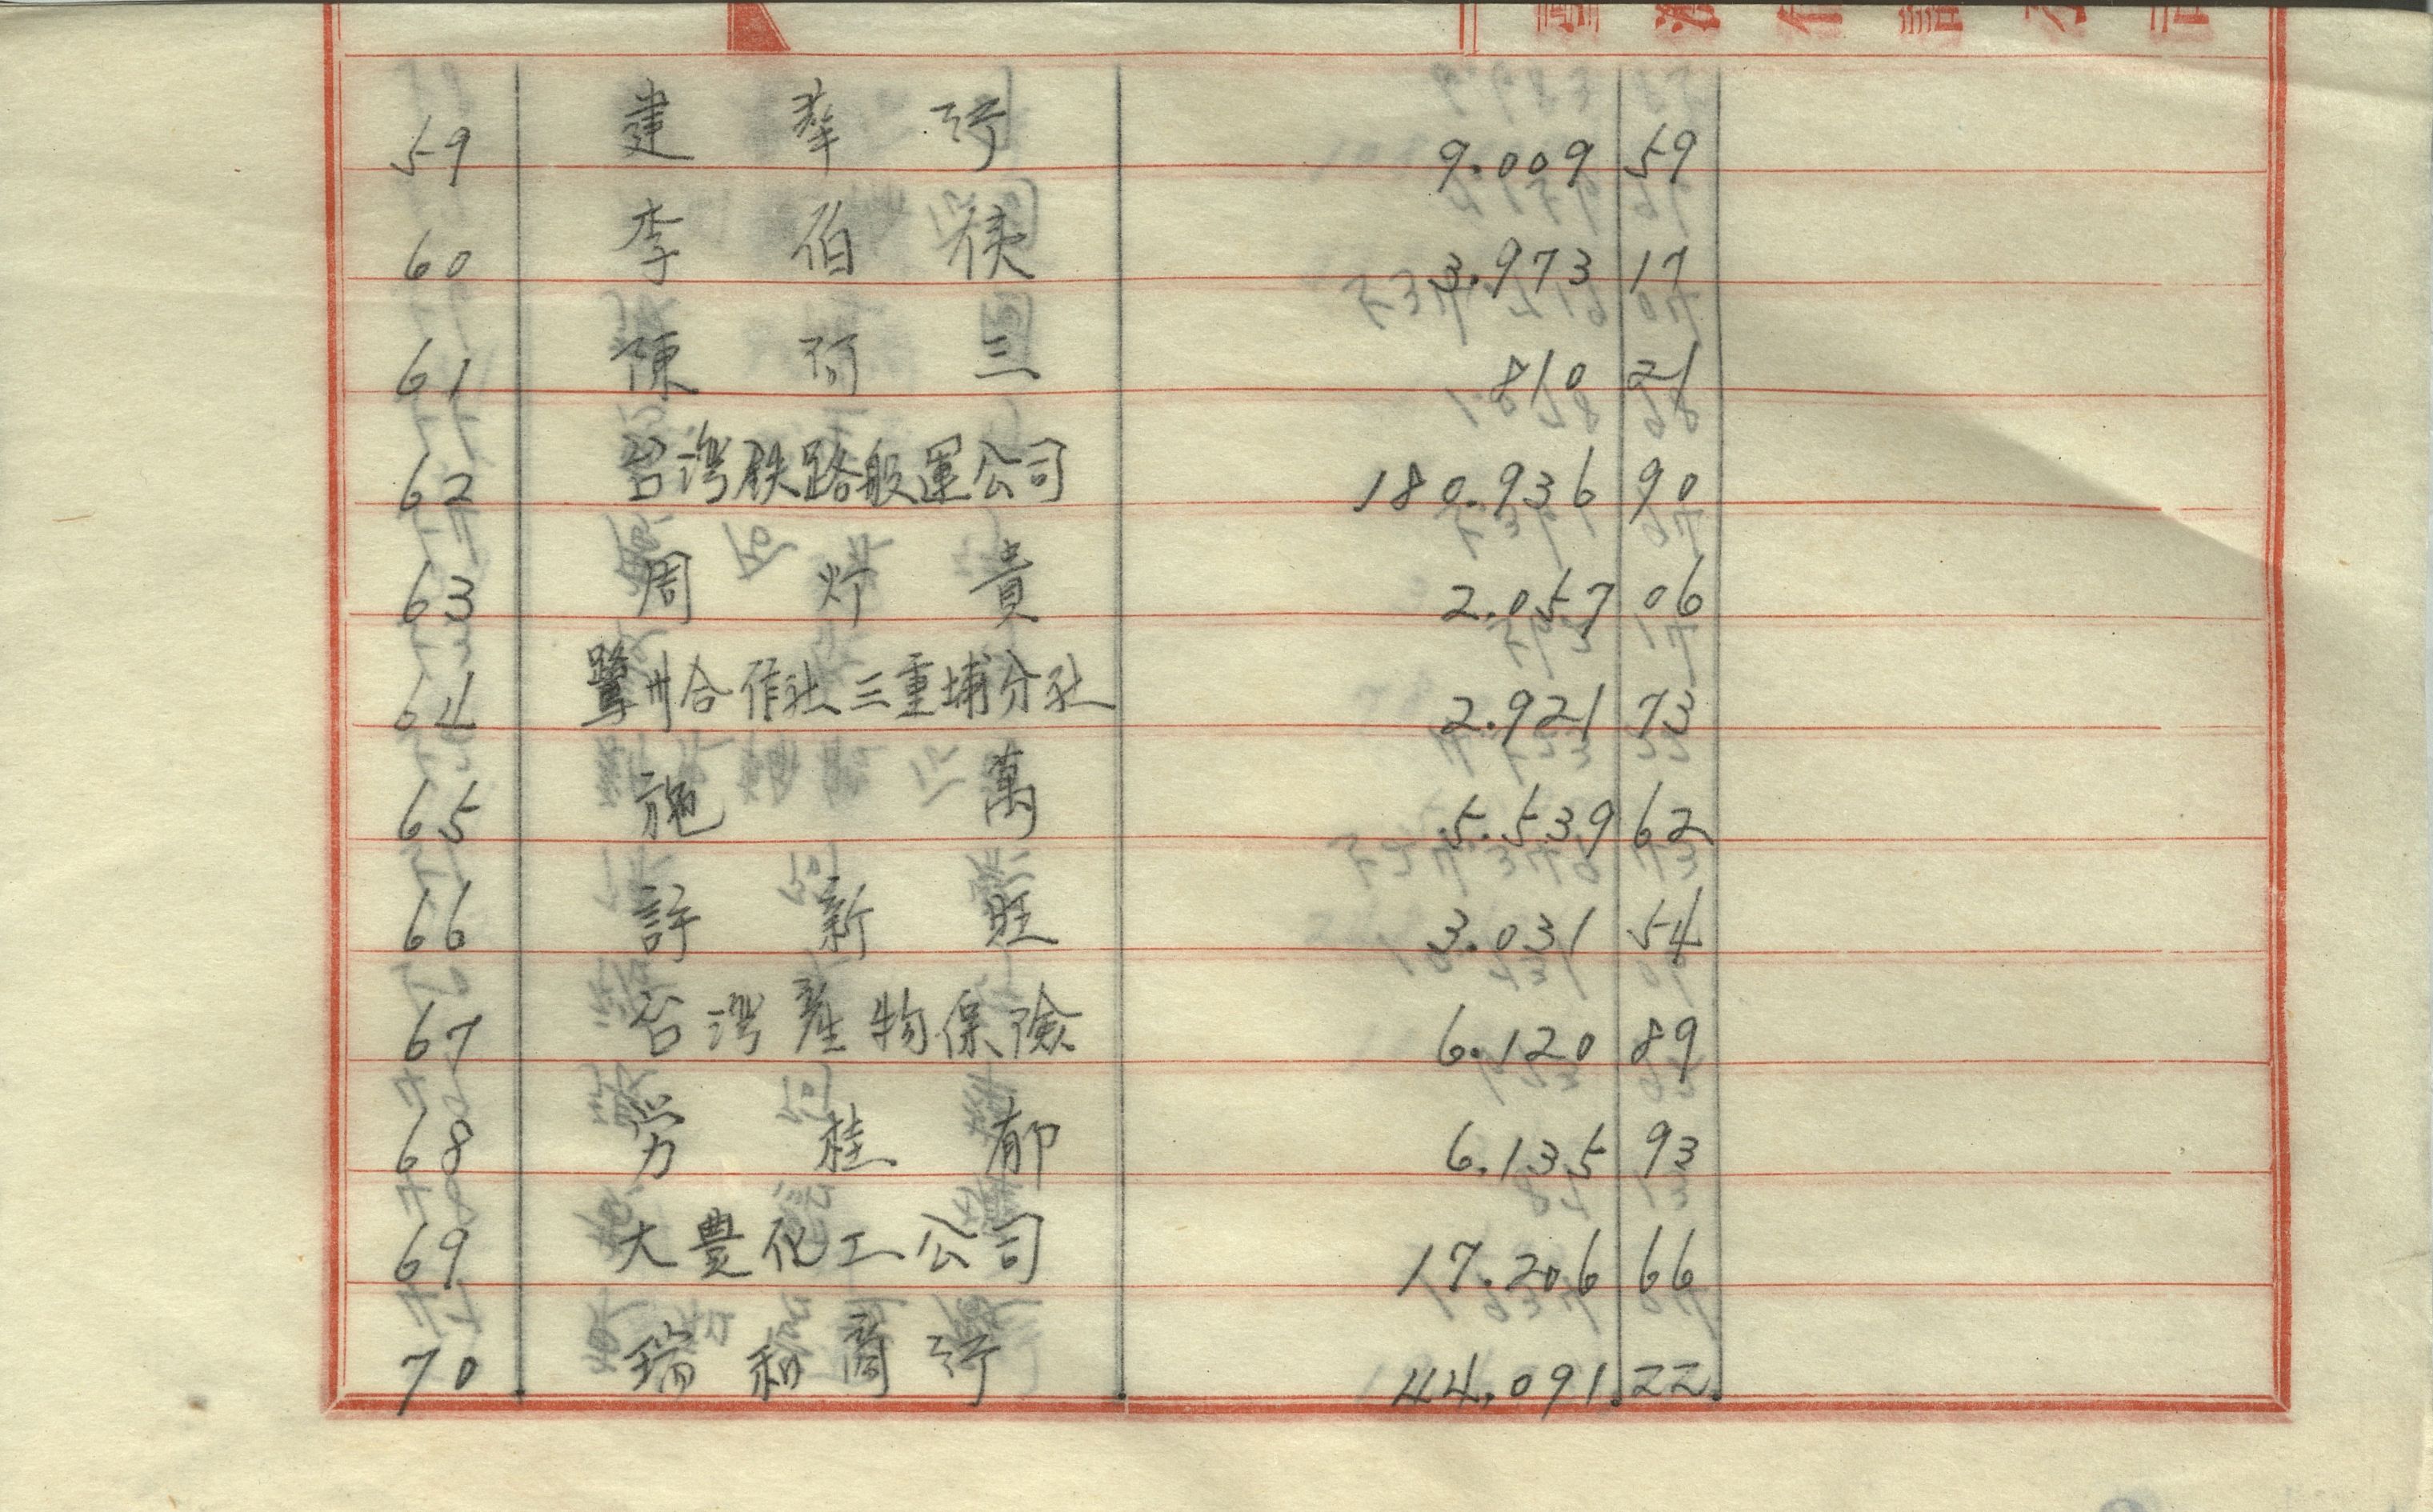 59 建華行 9.009 59
60 李伯侯 3.973 17
61 陳阿三 810 21
62 台湾鉄路般運公司 180.936 90
63 周灯貴 2.057 06
64 鷺州合作社三重埔分社 2.921 73
65 施萬 5.539 62
66 許新旺 3.031 54
67 台湾産物保險 6.120 89
68 労桂郁 6.135 93
69 大豊化工公司 17.206 66
70 瑞和商行 44.091 22